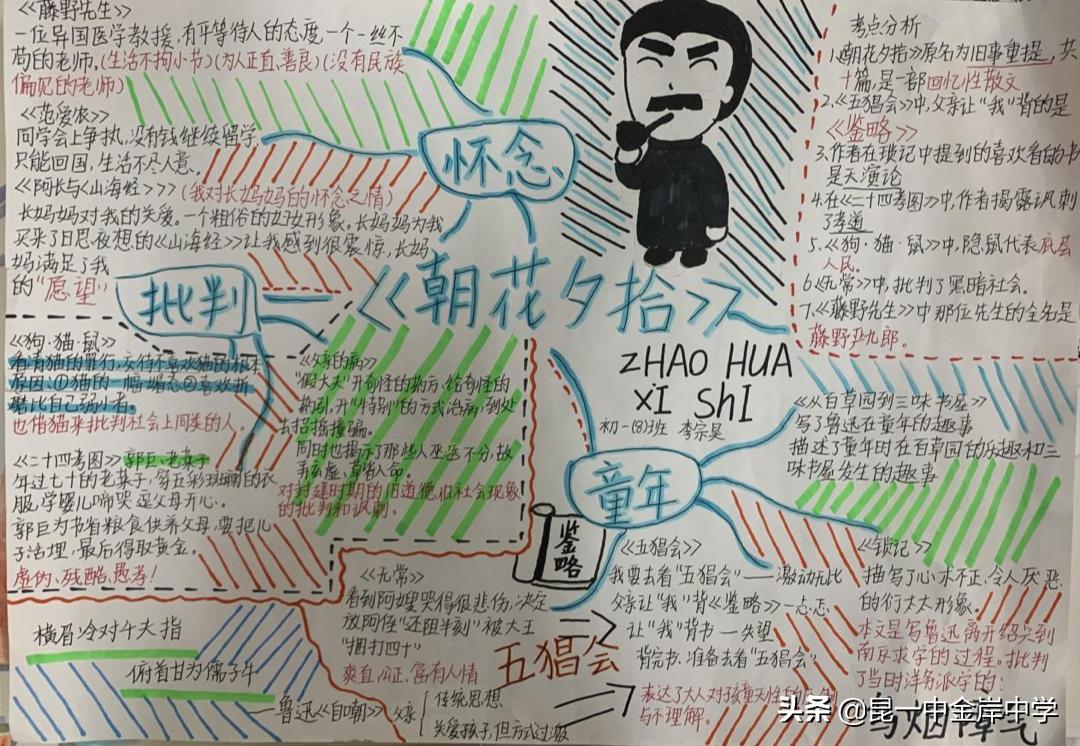 《藤野先生》
一位异国医学教授,有平等待人的态度,一个一丝不
苟的老师。(生活不拘小节)(为人正直、善良)(没有民族
偏见的老师)
《范爱农》
同学会上争执,没有钱继续留学,
只能回国,生活不尽人意。
《阿长与《山海经》》(我对长妈妈的怀念之情)
长妈妈对我的关爱。一个粗俗的妇女形象。长妈妈为我
买来了日思夜想的《山海经》让我感到很震惊,长妈
妈满足了我
的"愿望"
怀念
批判
《朝花夕拾》
ZHAO HUA
XI ShI
初一(8)班 李宗昊
童年
考点分析
1.《朝花夕拾》原名为旧事重提,共
十篇,是一部回忆性散文
2.《五猖会》中,父亲让"我"背的是
《鉴略》
3.作者在琐记中提到的喜欢看的书
是天演论
4.在《二十四孝图》中,作者揭露讽刺
了孝道
5.《狗·猫·鼠》中,隐鼠代表底层
人民。
6.《无常》中,批判了黑暗社会。
7.《藤野先生》中那位先生的全名是
藤野严九郎。
《狗·猫·鼠》
也借猫来批判社会上同类的人。
《二十四孝图》郭巨、老莱子
年过七十的老莱子,穿五彩斑斓的衣
服,学婴儿啼哭逗父母开心。
郭巨为节省粮食供养父母,要把儿
子活埋,最后得取黄金。
虚伪、残酷、愚孝!
《父亲的病》
去招摇撞骗。
同时也揭示了那些人巫医不分,故
弄玄虚、草菅人命。
对封建时期的旧道德、旧社会现象
的批判和讽刺。
《从百草园到三味书屋》
写了鲁迅在童年的趣事
描述了童年时在百草园的乐趣和三
味书屋发生的趣事
鉴略
《五猖会》
我要去看"五猖会"——激动无比
父亲让"我"背《鉴略》—忐忑
让"我"背书—失望
背完书、准备去看"五猖会"
表达了大人对孩童天性的
与不理解。
《锁记》
描写了心术不正、令人厌恶
的衍太太形象。
本文是写鲁迅离开绍兴到
南京求学的过程。批判
了当时洋务派学的:
乌烟瘴气
《无常》
看到阿嫂哭得很悲伤,决定
放阿侄"还阳半刻"被大王
"捆打四十"
爽直、公正、富有人情
五猖会
父亲
传统思想
关爱孩子,但方式过激
横眉冷对千夫指
俯首甘为儒子牛
——鲁迅《自嘲》
头条 @昆一中金岸中学